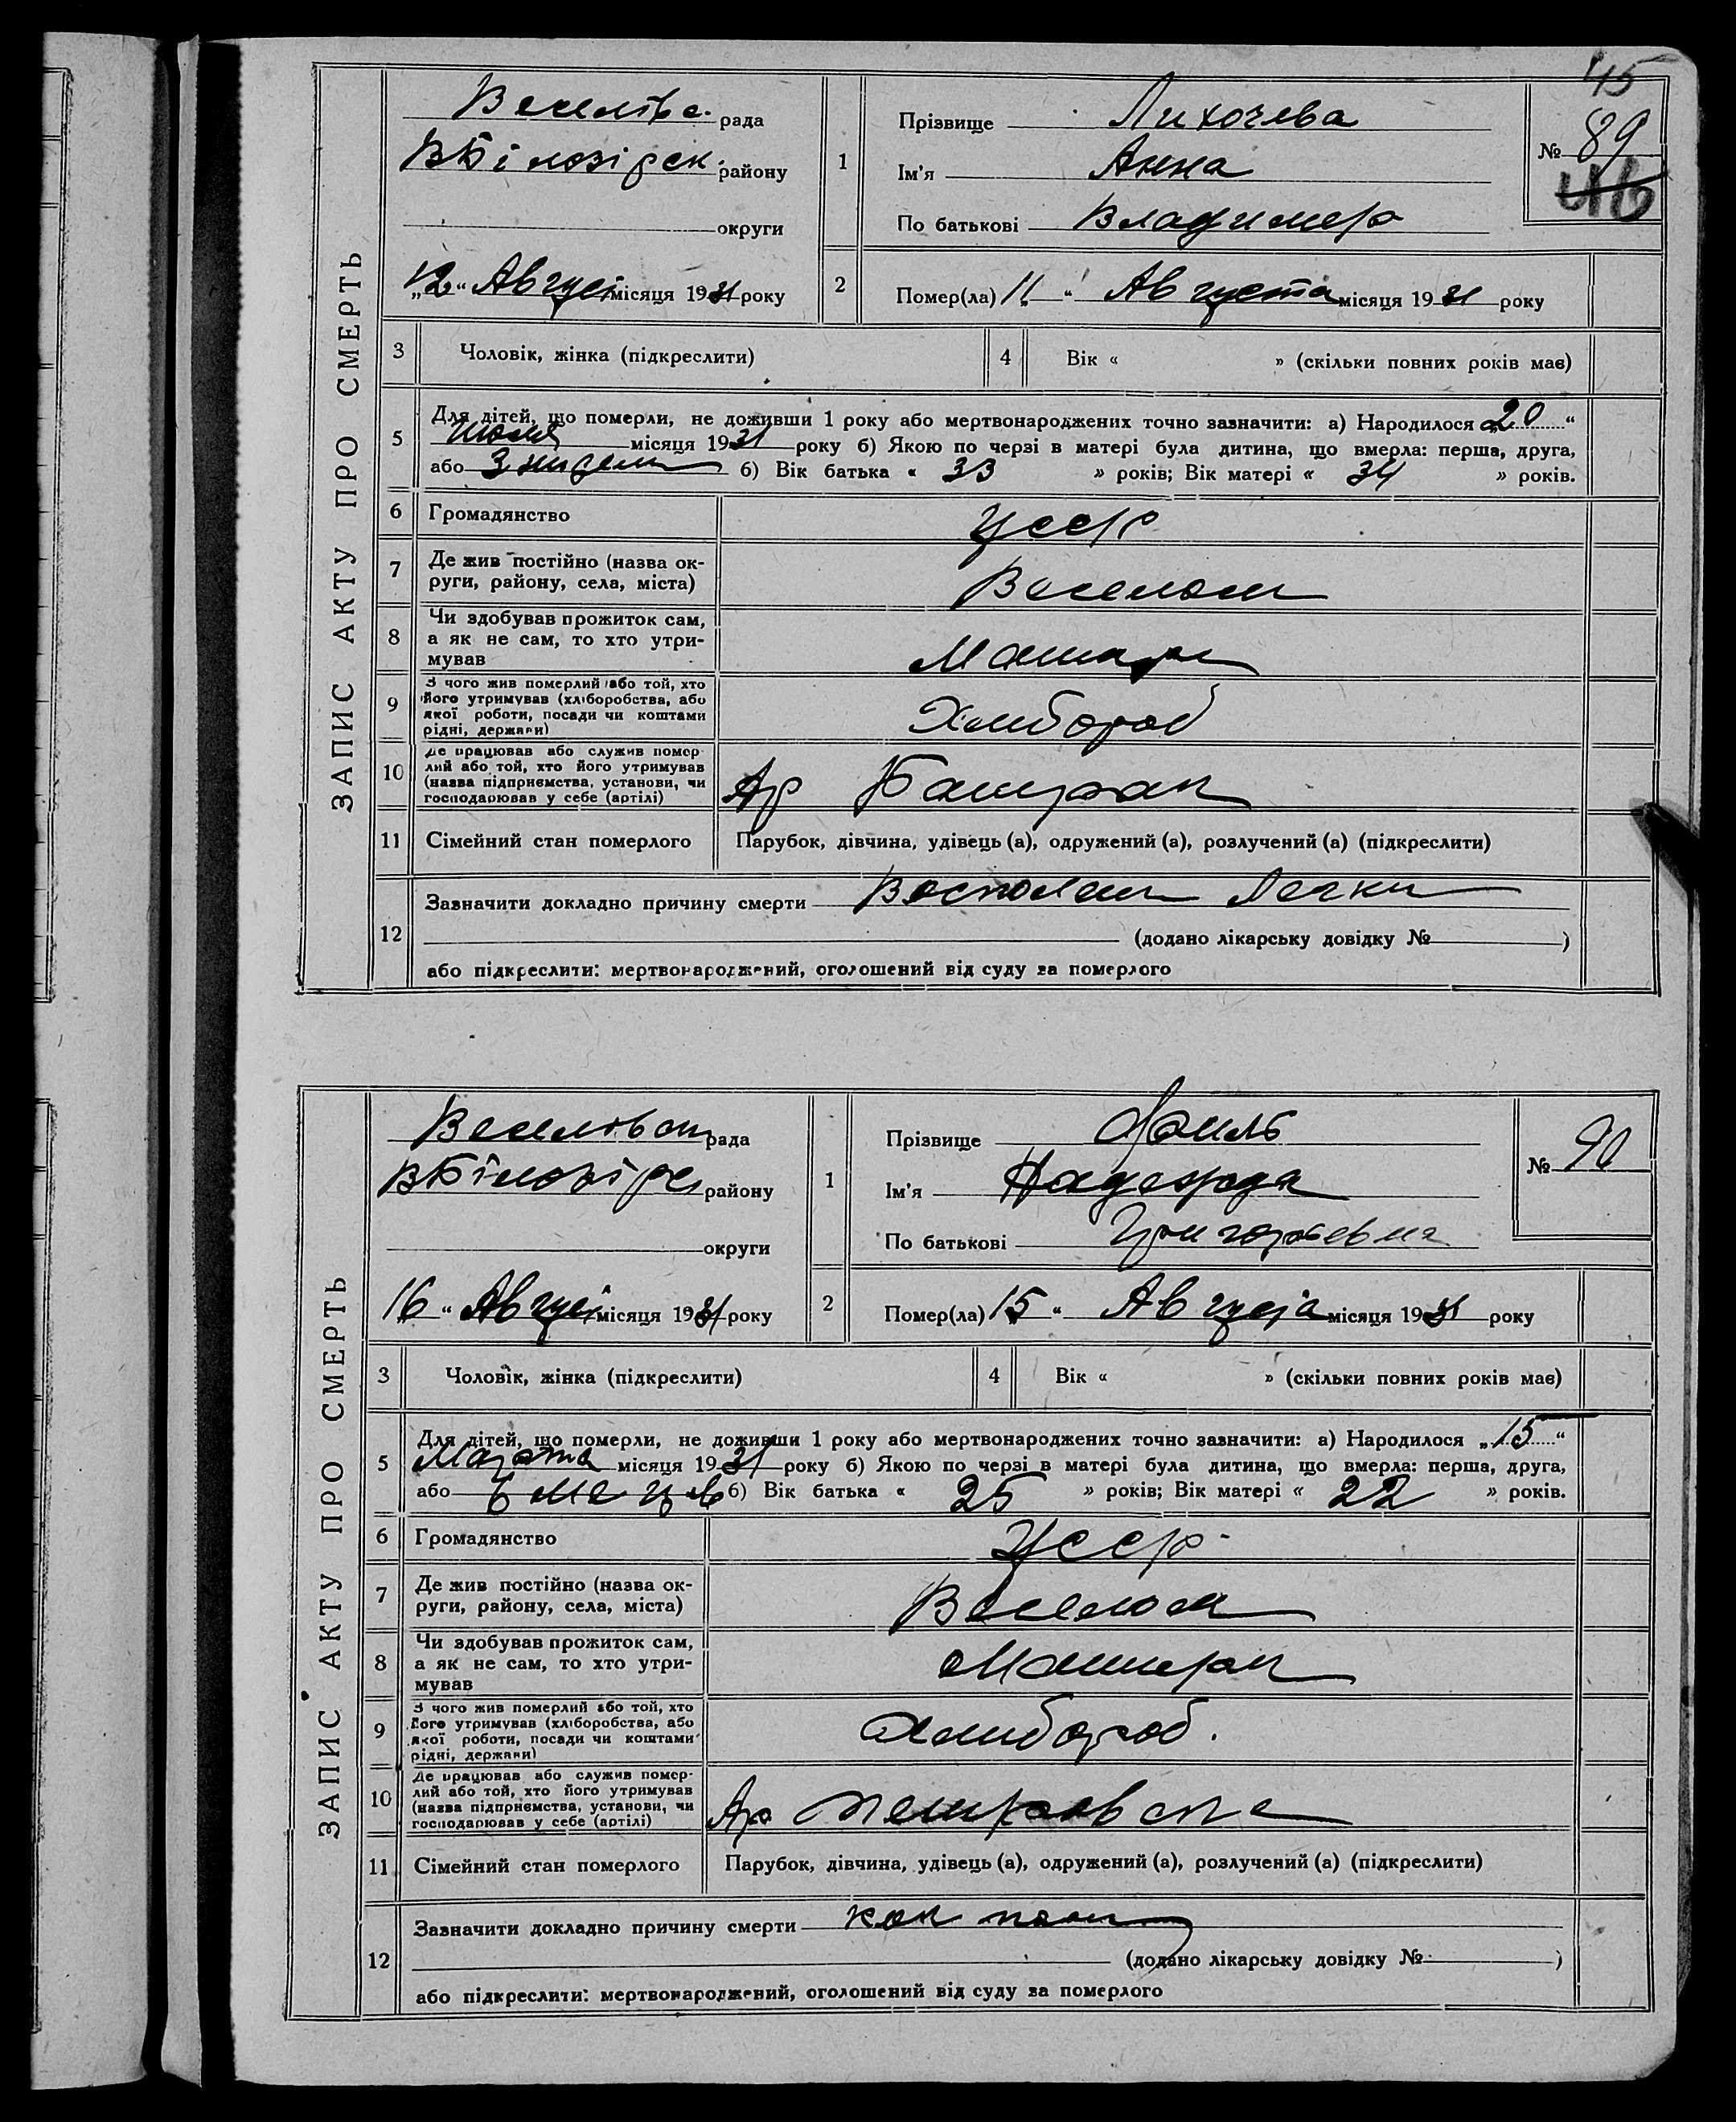 45
ЗАПИС АКТУ ПРО СМЕРТЬ
Веселівс. рада
ВБілозірск. району
округи
„12“ Август місяця 1931 року
1
Прізвище Лихочева
Ім'я Анна
По батькові Владимер
№ 89
46
2
Помер(ла) 11 “ Августа місяця 1931 року
3 Чоловік, жінка (підкреслити)
4 Вік « » (скільки повних років має)
5 Для дітей, що померли, не доживши 1 року або мертвонароджених точно зазначити: а) Народилося „20“
июля місяця 1931 року б) Якою по черзі в матері була дитина, що вмерла: перша, друга,
або 3 б) Вік батька « 33 » років; Вік матері « 34 » років.
6 Громадянство Усср
7 Де жив постійно (назва ок-
руги, району, села, міста) Веселом
8 Чи здобував прожиток сам,
а як не сам, то хто утри-
мував
9 З чого жив померлий або той, хто
його утримував (хліборобства, або
якої роботи, посади чи коштами
рідні, держави)
Хлибороб
10 Де працював або служив помер-
лий або той, хто його утримував
(назва підприємства, установи, чи
господарював у себе (артілі)
Ар Батрак
11 Сімейний стан померлого Парубок, дівчина, удівець (а), одружений (а), розлучений (а) (підкреслити)
12 Зазначити докладно причину смерти Восполен Легки
(додано лікарську довідку № )
або підкреслити: мертвонароджений, оголошений від суду за померлого
ЗАПИС АКТУ ПРО СМЕРТЬ
Веселовск рада
ВБілозірс району
округи
16 “ Август місяця 1931 року
1
Прізвище Фаиль
Ім'я Надежда
По батькові Григорьевна
№ 90
2
Помер(ла) 15 “ Августа місяця 1931 року
3 Чоловік, жінка (підкреслити)
4 Вік « » (скільки повних років має)
5 Для дітей, що померли, не доживши 1 року або мертвонароджених точно зазначити: а) Народилося „15“
Марта місяця 1931 року б) Якою по черзі в матері була дитина, що вмерла: перша, друга,
або б) Вік батька « 25 » років; Вік матері « 22 » років.
6 Громадянство Усср
7 Де жив постійно (назва ок-
руги, району, села, міста) Веселом
8 Чи здобував прожиток сам,
а як не сам, то хто утри-
мував
9 З чого жив померлий або той, хто
його утримував (хліборобства, або
якої роботи, посади чи коштами
рідні, держави)
Хлибороб.
10 Де працював або служив помер-
лий або той, хто його утримував
(назва підприємства, установи, чи
господарював у себе (артілі)
Ар Петровска
11 Сімейний стан померлого Парубок, дівчина, удівець (а), одружений (а), розлучений (а) (підкреслити)
12 Зазначити докладно причину смерти
(додано лікарську довідку № )
або підкреслити: мертвонароджений, оголошений від суду за померлого